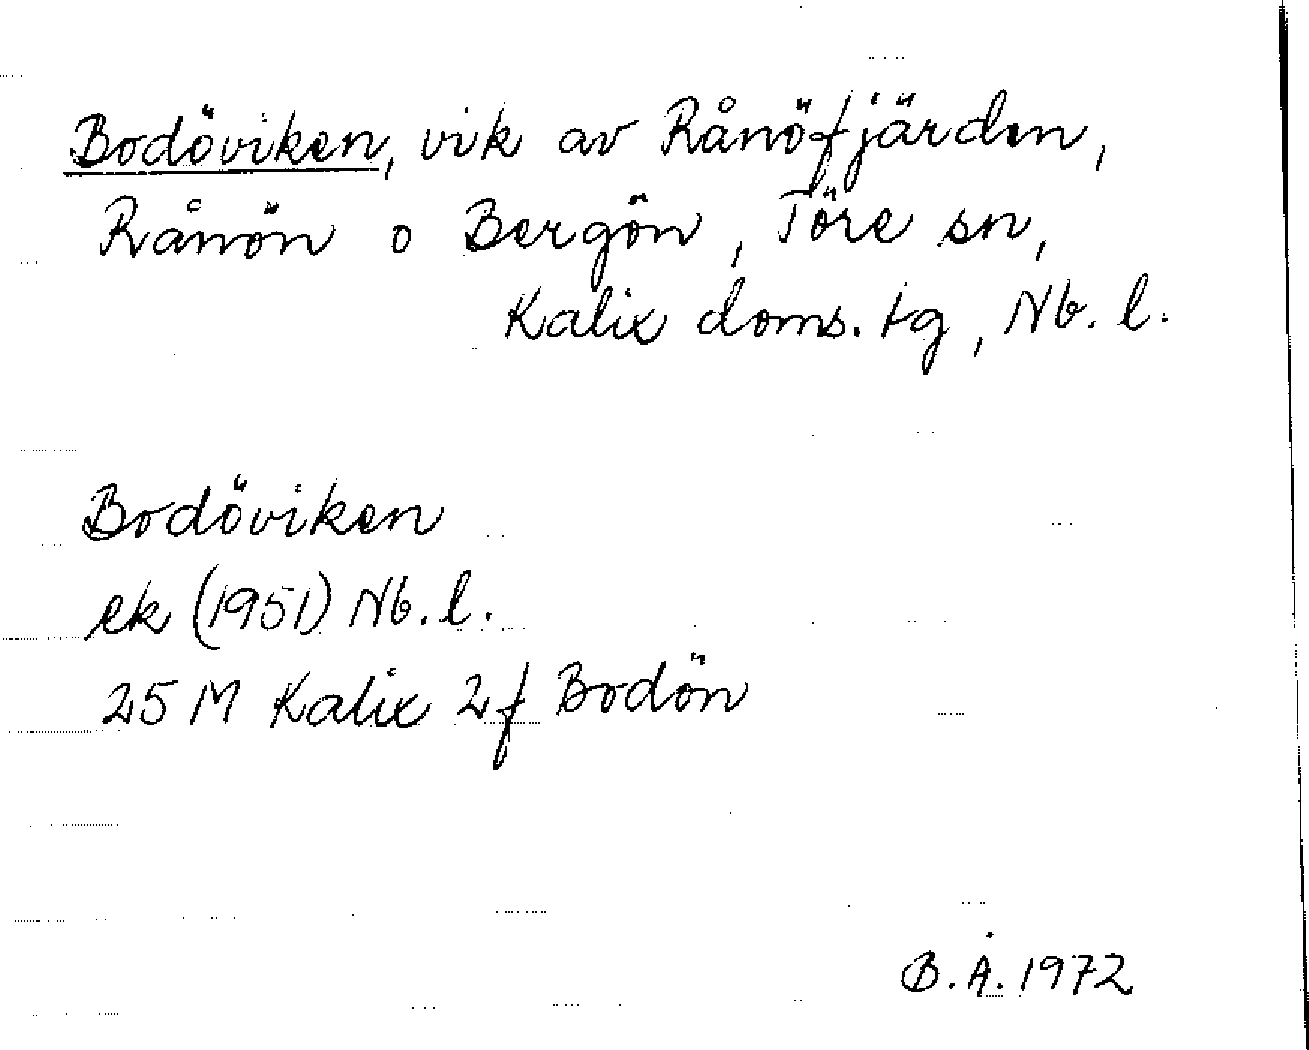 Bodöviken, vik av Rånöfjärden,
Rånön o Bergön, Töre sn,
Kalix doms. tg, Nb. l.
Bodöviken
ek (1951) Nb. l.
25 M Kalix 2f Bodön
B. Å. 1972